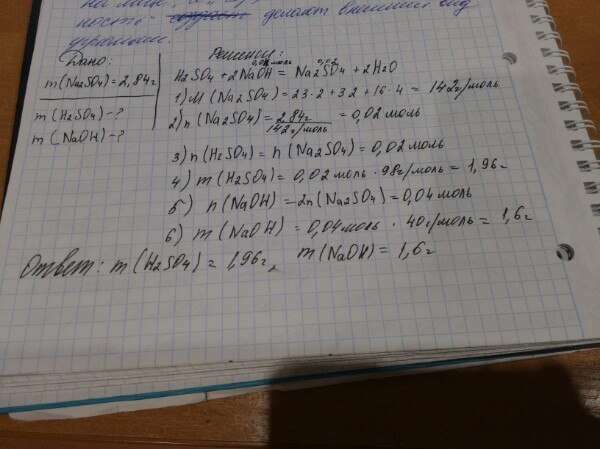 ность делают внешний вид
угрюмым.
Дано:
m(Na2SO4)=2,84г
m(H2SO4)-?
m(NaOH)-?
Решение:
H2SO4+2NaOH=Na2SO4+2H2O
1) M(Na2SO4)=23·2+32+16·4=142г/моль
2) n(Na2SO4)=2,84г/142г/моль=0,02моль
3) n(H2SO4)=n(Na2SO4)=0,02моль
4) m(H2SO4)=0,02моль·98г/моль=1,96г
5) n(NaOH)=2n(Na2SO4)=0,04моль
6) m(NaOH)=0,04моль·40г/моль=1,6г
Ответ: m(H2SO4)=1,96г, m(NaOH)=1,6г